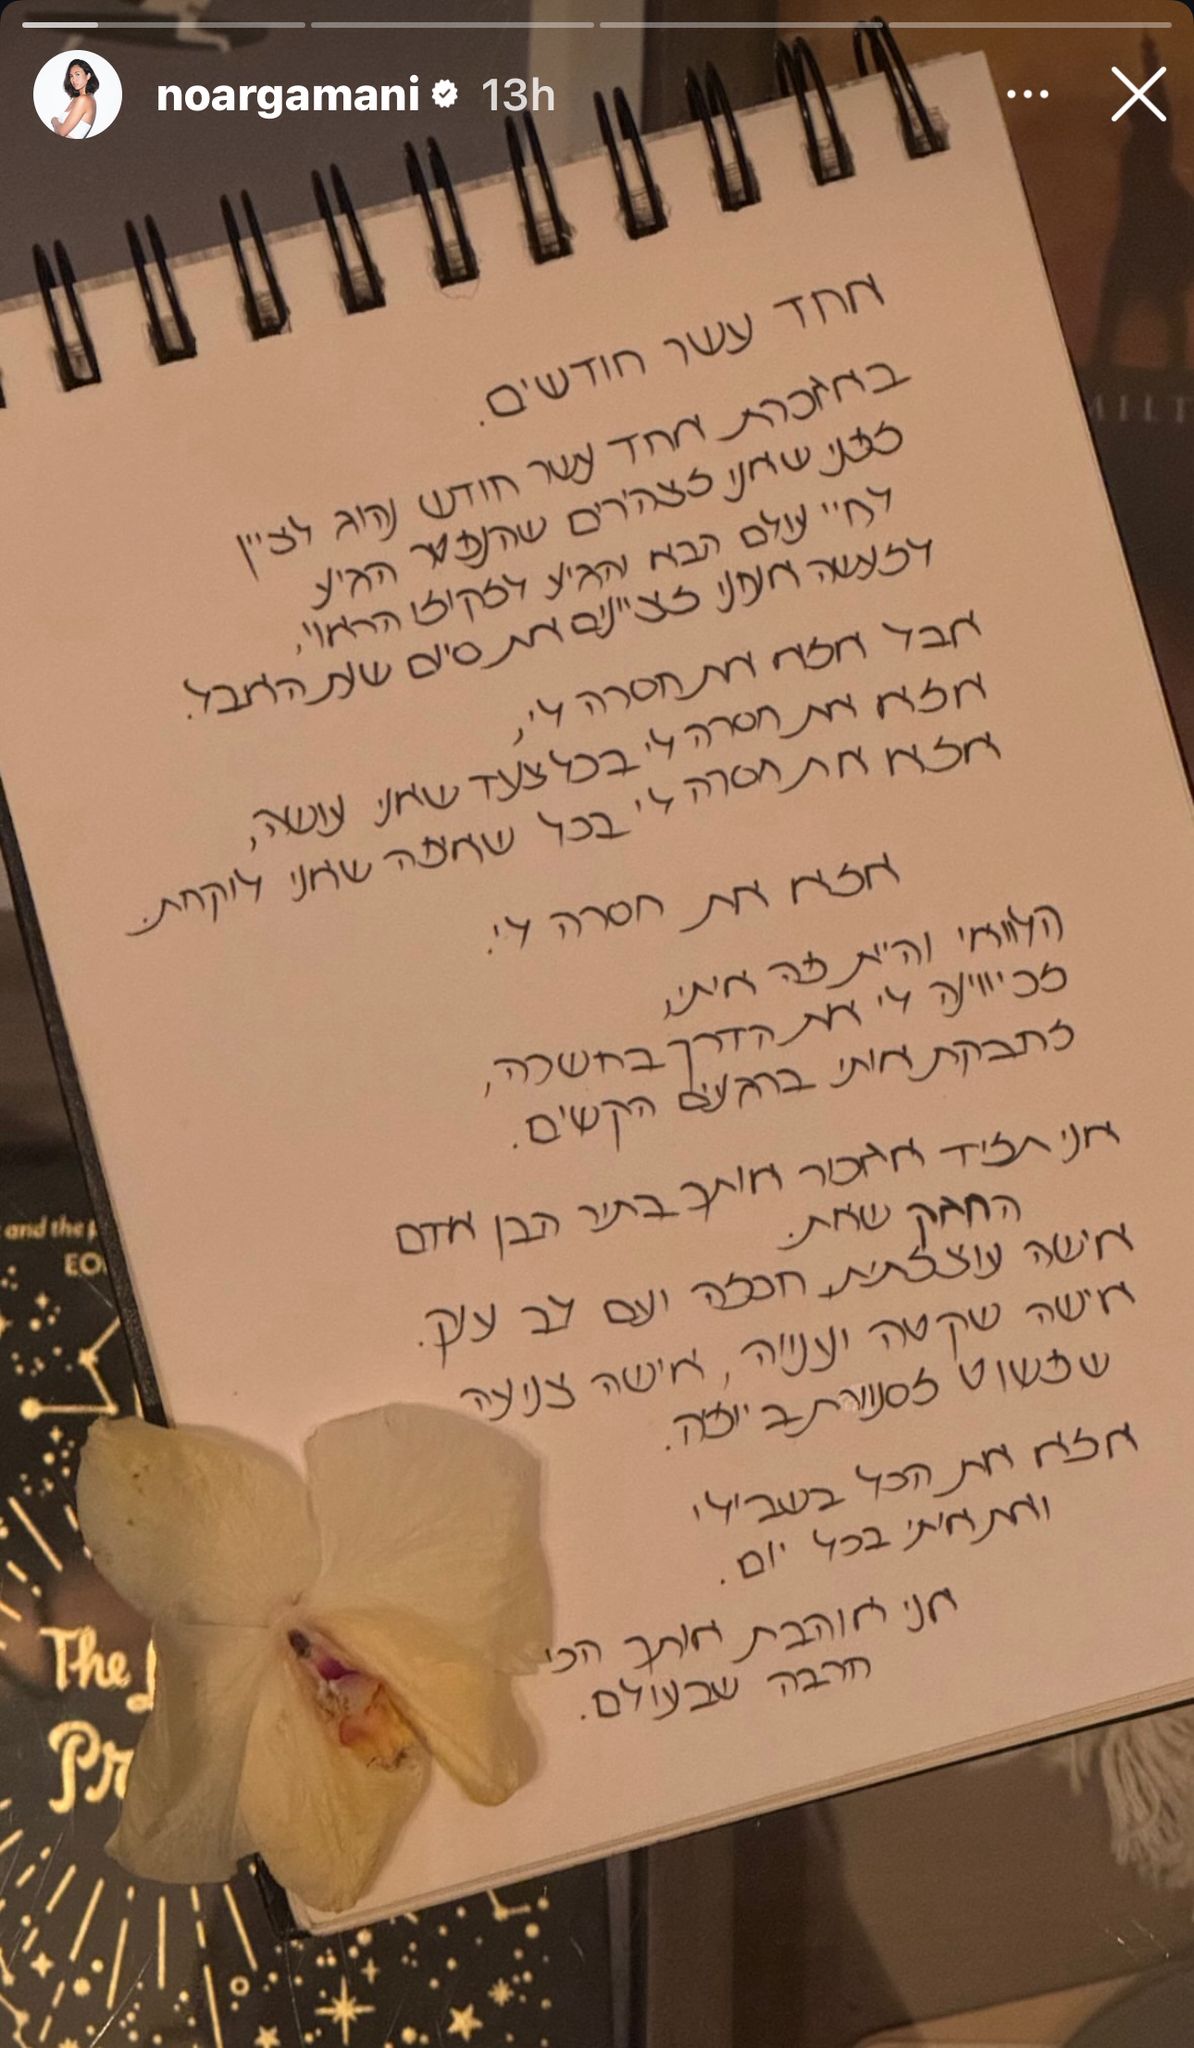 noargamani 13h
אחד עשר חודשים.
באזכרת אחד עשר חודש נהוג לציין
מפני שאנו מצהירים שהנפטר הגיע
לחיי עולם הבא והגיע למקומו הראוי,
למעשה אנחנו מציינים את סיום שנת האבל.
אבל אמא את חסרה לי,
אמא את חסרה לי בכל צעד שאני עושה,
אמא את חסרה לי בכל שאיפה שאני לוקחת.
אמא את חסרה לי.
הלוואי והיית פה איתי,
מכווינה לי את הדרך בחשכה,
מחבקת אותי ברגעים הקשים.
אני תמיד אזכור אותך בתור הבן אדם
החזק שאת.
אישה עוצמתית, חכמה ועם לב ענק.
אישה שקטה וענווה, אישה צנועה
שפשוט מסנוורת ביופיה.
אמא את הכל בשבילי
ואת איתי בכל יום.
אני אוהבת אותך הכי
הרבה שבעולם.
and the
The